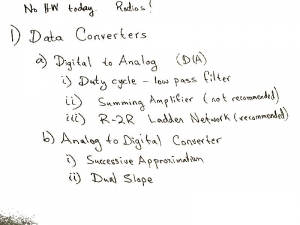 No HW today. Radios!
1) Data Converters
a) Digital to Analog (D/A)
i) Duty cycle - low pass filter
ii) Summing Amplifier (not recommended)
iii) R-2R Ladder Network (recommended)
b) Analog to Digital Converter
i) Successive Approximation
ii) Dual Slope